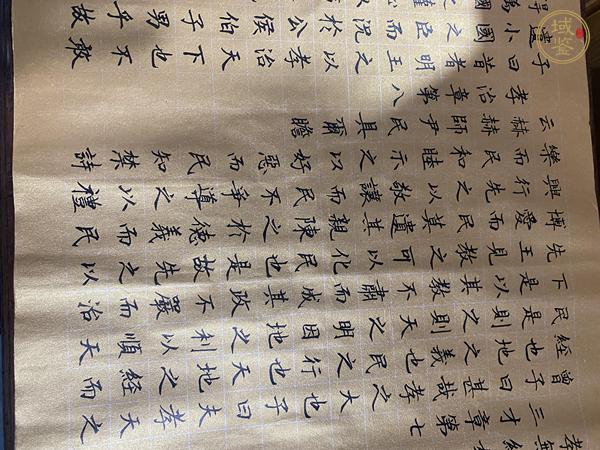 孝無終
三才章第七
曾子曰甚哉孝之大也子曰夫孝天之
經也地之義也民之行也天地之經而
民是則之則天之明因地之利以順天
下是以其教不肅而成其政不嚴而治
先王見教之可以化民也是故先之以
博愛而民莫遺其親陳之於德義而民
興行先之以敬讓而民不爭導之以禮
樂而民和睦示之以好惡而民知禁詩
云赫赫師尹民具爾瞻
孝治章第八
子曰昔者明王之以孝治天下也不敢
遺小國之臣而況於公侯伯子男乎故
得萬國